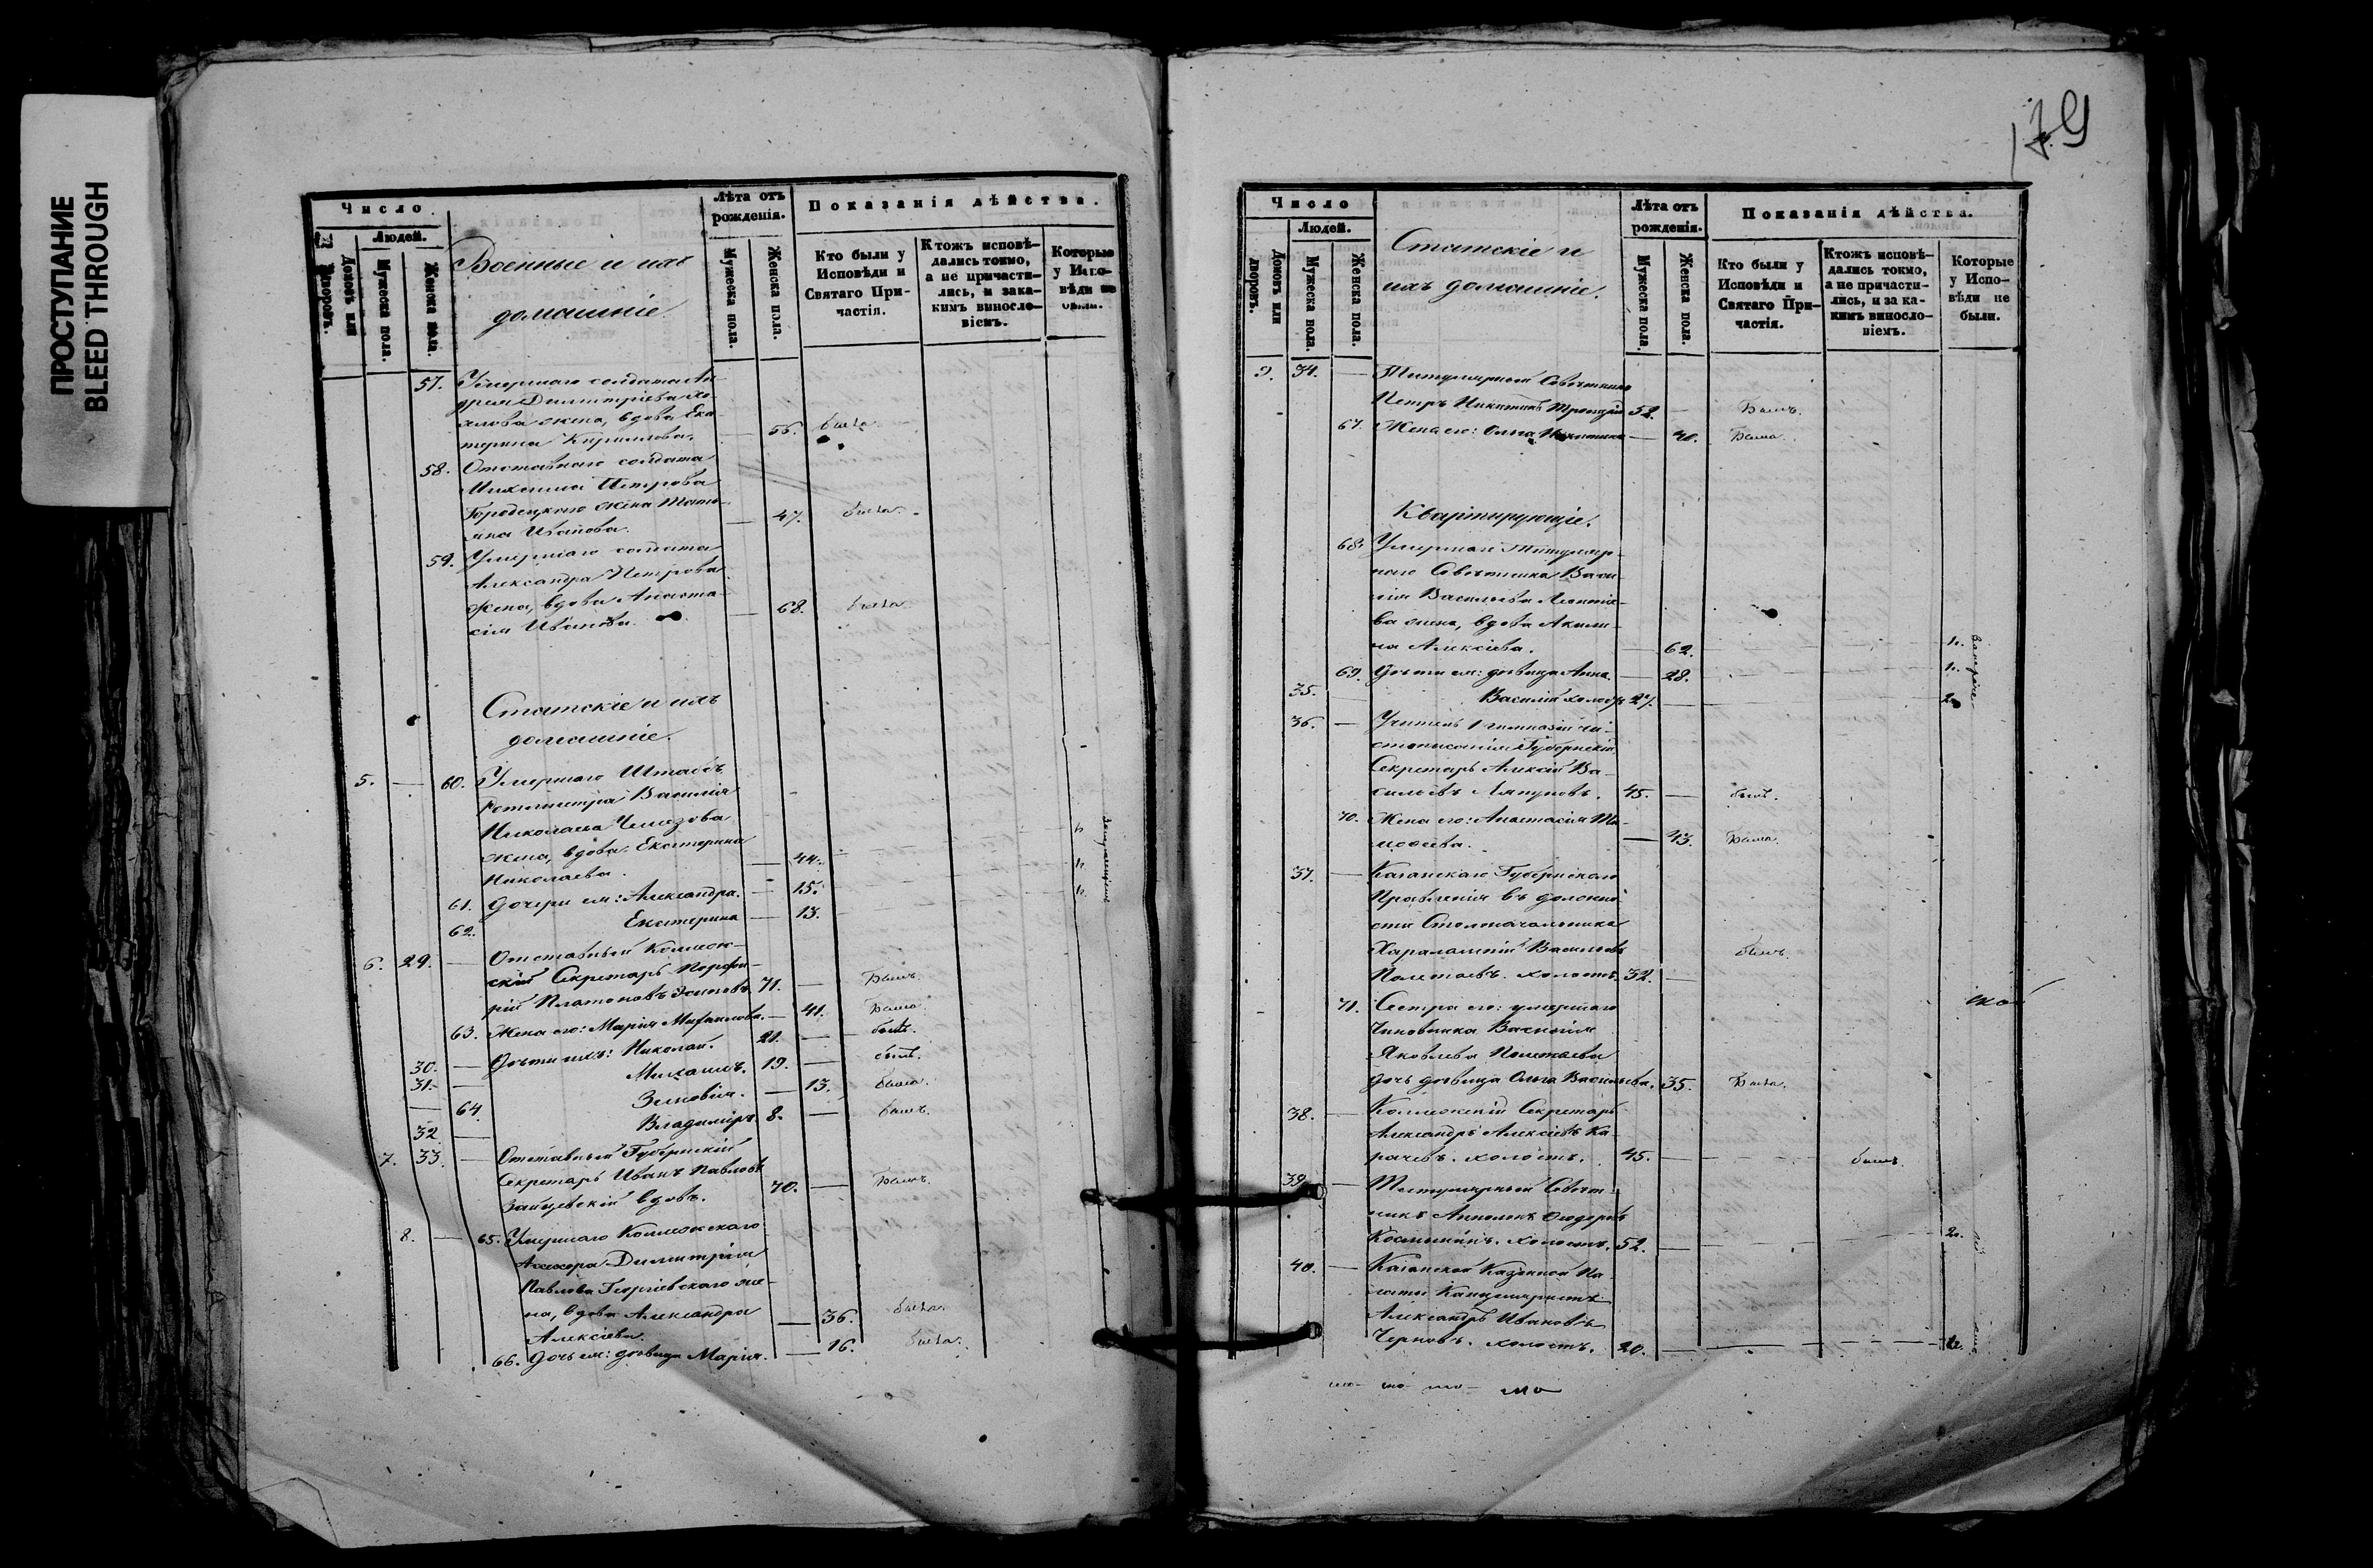 ПРОСТУПАНИЕ
BLEED THROUGH
Число
Людей.
Домовъ или дворовъ.
Мужеска пола.
Женска пола.
Военные и ихъ
домашніе.
Лѣта отъ
рожденія.
Мужеска пола.
Женска пола.
Показанія дѣйства.
Кто были у
Исповѣди и
Святаго При-
частія.
Ктожъ исповѣ-
дались токмо,
а не причасти-
лись, и за ка-
кимъ виносло-
віемъ.
Которые
у Испо-
вѣди не
были.
57. Умершаго солдата Ан-
дрея Димитріева
жена, вдова Ека-
терина Кириллова. — 56. была.
58. Отставнаго солдата
Михаила Петрова
Городецкаго жена Татья-
на Иванова. — 47. была.
59. Умершаго солдата
Александра Петрова
жена, вдова Анаста-
сія Иванова. — 68. была.
Статскіе и ихъ
домашніе.
5. — 60. Умершаго Штабсъ
Ротмистра Василія
Николаева
жена, вдова Екатерина
Николаева. — 44.
61. Дочери ея: Александра. — 15.
62. Екатерина — 13.
6. 29. — Отставный Коллеж-
скій Секретарь Порфи-
рій Платоновъ 71. — Былъ.
63. Жена его: Марія Михаилова. — 41. Была.
30. — Дѣти ихъ: Николай. 21. — былъ.
31. — Михаилъ. 19. — былъ.
— 64. Зиновія. — 13. была.
32. — Владиміръ 8. — былъ.
7. 33. — Отставный Губернскій
Секретарь Иванъ Павловъ
Зайцевскій вдовъ. 70. — Былъ.
8. — 65. Умершаго Коллежскаго
Ассесора Димитрія
Павлова Георгіевскаго же-
на, вдова Александра
Алексіева. — 36. была.
66. Дочь ея: дѣвица Марія. — 16. была.
179
Число
Людей.
Домовъ или дворовъ.
Мужеска пола.
Женска пола.
Статскіе и
ихъ домашніе.
Лѣта отъ
рожденія.
Мужеска пола.
Женска пола.
Показанія дѣйства.
Кто были у
Исповѣди и
Святаго При-
частія.
Ктожъ исповѣ-
дались токмо,
а не причасти-
лись, и за ка-
кимъ виносло-
віемъ.
Которые
у Испо-
вѣди не
были.
9. 34. — Титулярный Совѣтникъ
Петръ Никитинъ 52. — Былъ.
67. Жена его: Ольга Никитина — 40. Была.
Квартирующіе.
68. Умершаго Титуляр-
наго Совѣтника Васи-
лія Васильева Леонтіе-
ва жена, вдова Акили-
на Алексіева. — 62.
69. Дѣти ея: дѣвица Анна. — 28.
35. Василій холостъ 27. —
36. — Учитель 1 гимназіи чи-
стописанія Губернскій
Секретарь Алексій Ва-
сильевъ Ляпуновъ. 45. — былъ.
70. Жена его: Анастасія Ти-
моѳеева. — 43. Была.
37. — Казанскаго Губернскаго
Правленія въ должно-
сти Столоначальника
Харалампій Васильевъ
Полетаевъ. холостъ. 32. — былъ.
71. Сестра его: умершаго
Чиновника Василія
Яковлева Полетаева
дочь дѣвица Ольга Васильева. 35. Была.
38. — Коллежскій Секретарь
Александръ Алексіевъ Ка-
рачевъ. холостъ. 45. — былъ.
39. — Титулярный Совѣт-
никъ Ѳеодоровъ
холостъ. 52. —
40. — Казанской Казенной Па-
латы Канцеляристъ
Александръ Ивановъ
Черновъ. холостъ. 20. —